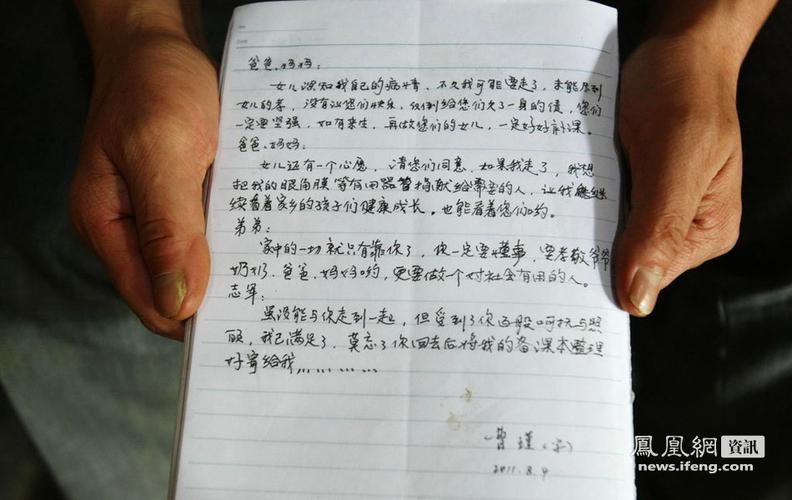 爸爸、妈妈:
女儿深知我自己的病情,不久我可能要走了,未能尽到
女儿的孝,没有让您们快乐,反倒给您们欠了一身的债,您们
一定要坚强,如有来生,再做您们的女儿,一定好好补课。
爸爸、妈妈:
女儿还有一个心愿,请您们同意,如果我走了,我想
把我的眼角膜等有用器管捐献给需要的人,让我继
续看着家乡的孩子们健康成长。也能看着您们哟。
弟弟:
家中的一切就只有靠你了,你一定要懂事,要孝敬爷爷
奶奶、爸爸、妈妈哟,更要做一个对社会有用的人。
志军:
虽没能与你走到一起,但受到了你百般呵护与照
顾,我已满足了,莫忘了你回去后将我的备课本整理
好寄给我,,,,,,
曹瑾(字)
2011.8.9
鳳凰網 資訊
news.ifeng.com